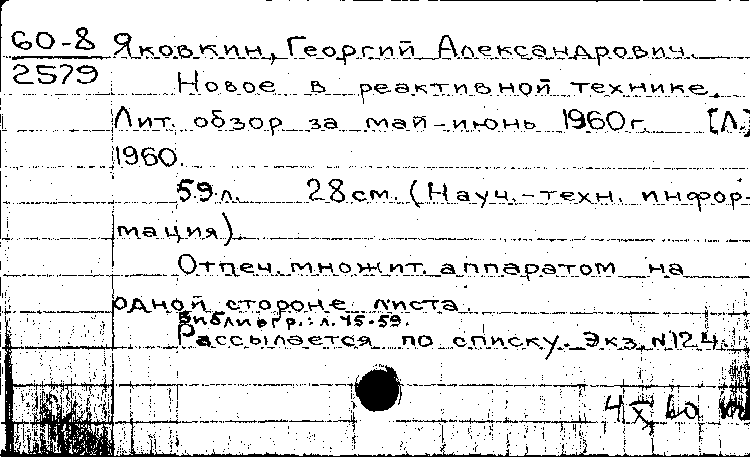 60-8 Яковкин, Георгий Александрович.
2579 Новое в реактивной технике.
Лит. обзор за май-июнь 1960г. [Л.]
1960.
59 л. 28 см. (Науч.-техн. инфор-
мация).
Отпеч. множит. аппаратом на
одной стороне листа.
Библиогр.: л. 45-59.
Рассылается по списку. Экз. №124.
4 X 60